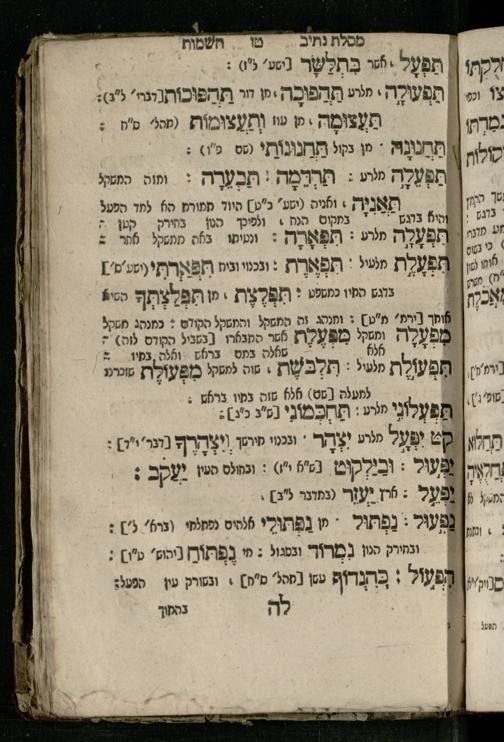 מסלת נתיב טו השמות
תִּפְעַל , אשר בִּתְלַשָּׂר [ישע׳ ל״ז) :
תַּפְעוּלָה , מלרע תַּהְפּוּכָה , מן דור תַּהְפּוּכוֹת [דברי׳ ל״ב) :
תַּעֲצוּמָה , מן עוז וְתַעֲצוּמוֹת (תהל׳ ס״ח :
תַּחֲנוּנָה · מן בקול תַּחֲנוּנוֹתַי (שם פ״ו) :
תַּפְעֵלָה מלרע : תַּרְדֵּמָה : תַּבְעֵרָה : ומזה המשקל
תַּאֲנִיָּה , ואניה (ישע׳ כ״ט] היוד תמורת הא למד הפעל
והיא בדגש במקום הנח , ולפיכך הנון בחירק קטן :
תִּפְעָלָה מלרע : תִּפְאָרָה : ונעימו באה ממשקל אחר :
תִּפְעֶלֶת מלעיל : תִּפְאֶרֶת : ובכנוי ובית תִּפְאַרְתִּי (ישע׳ ס׳]
בדגש התיו כמשפט : תִּפְלֶצֶת , מן תִּפְלַצְתְּךָ השיא
אותך [ירמ׳ מ״ט] : ומנהג זה המשקל והמשקל הקודם : כמנהג משקל
מִפְעָלָה ומשקל מִפְעֶלֶת אשר התבארו [בשביל הקודם לזה) :
אלא שאלה במם בראש ואלה בתיו :
תִּפְעוֹלֶת מלעיל : תִּלְבּוֹשֶׁת , שוה למשקל מִפְעוֹלֶת שזכרנו
למעלה [שם) אלא שזה בתיו בראש :
תַּפְעֲלוֹנִי מלרע : תַּחְכְּמוֹנִי [ש״ב כ״ג] :
קט יִפְעָל מלרע יִצְהָר · ובכנוי תירשך וְיִצְהָרֶךָ [דבר׳ י״ד] :
יַפְעוּל : וּבַיַּלְקוּט [ש״א י״ז) : ובחולם העין יַעֲקֹב :
יַפְעֵל : ארץ יַעְזֵר (במדבר ל״ב] ,
נַפְעוּל : נַפְתּוּל · מן נַפְתּוּלֵי אלהים נפתלתי (ברא׳ ל׳] :
ובחירק הנון נִמְרוֹד ובסגול : מי נֶפְתּוֹחַ [יהוש׳ ט״ו] :
הִפְעוֹל : כְּהִנְדּוֹף עשן [תהל׳ ס״ח] , ובשורק עין הפעל :
לה בהתוך